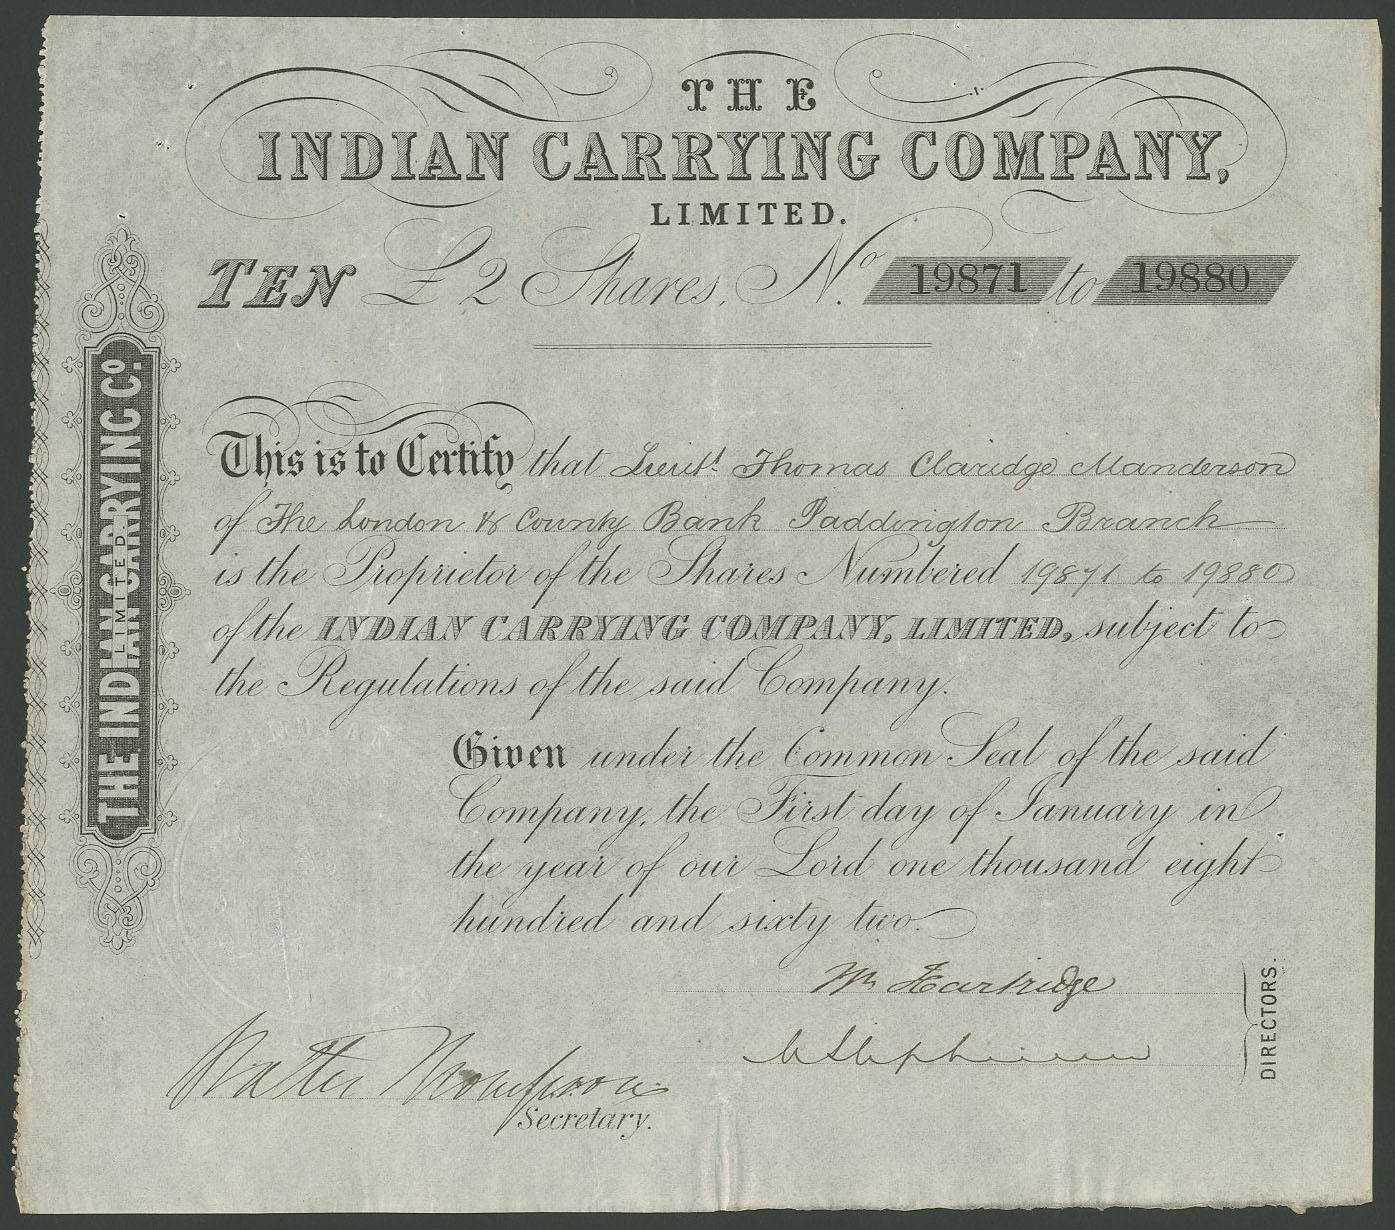 THE
INDIAN CARRYING COMPANY,
LIMITED.
TEN £2 Shares, No. 19871 to 19880
THE INDIAN CARRYING Co.
LIMITED.
This is to Certify that Lieutt. Thomas Claridge Manderson
of The London & County Bank Paddington Branch
is the Proprietor of the Shares Numbered 19871 to 19880
of the INDIAN CARRYING COMPANY, LIMITED, subject to
the Regulations of the said Company.
Given under the Common Seal of the said
Company, the First day of January in
the year of our Lord one thousand eight
hundred and sixty two.
Wm Hartridge
DIRECTORS.
Walter
Secretary.